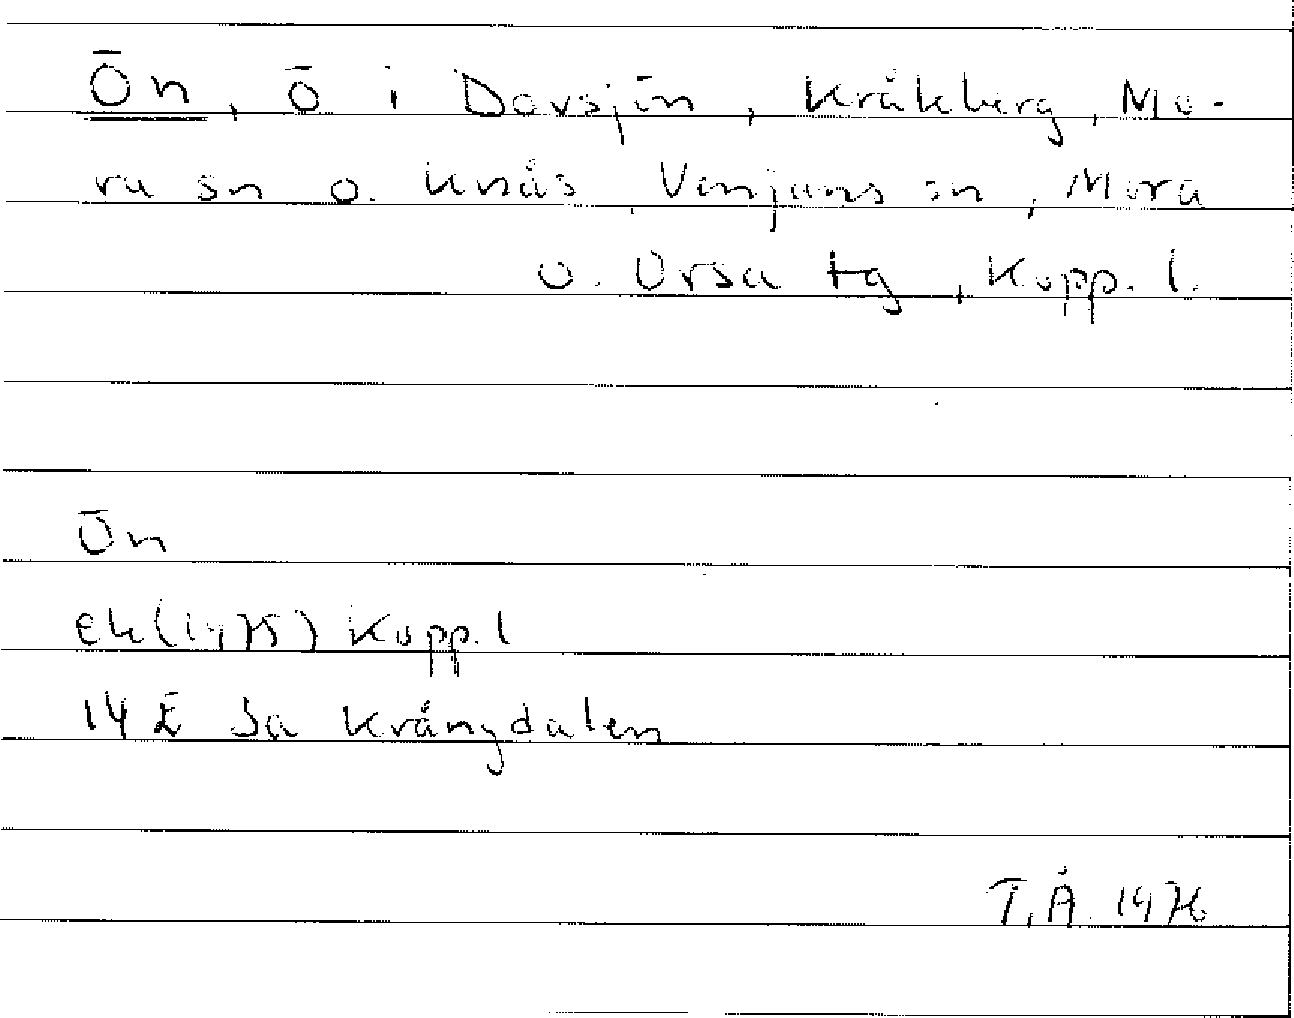 Ön, ö i Dovsjön, Kråkberg, Mo-
ra sn o. Knås, Venjans sn, Mora
o. Orsa tg, Kopp. l.
Ön
ek (1975) Kopp. l
14 E 3a Krångdalen
T.Å. 1976